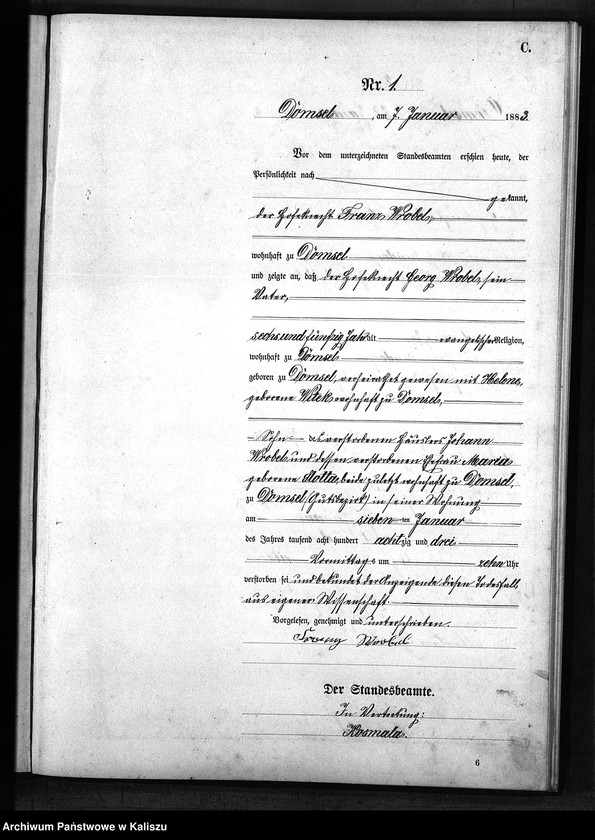 C.
Nr. 1.
Dömsel, am 7. Januar 1883.
Vor dem unterzeichneten Standesbeamten erschien heute, der
Persönlichkeit nach
gekannt,
der Hofeknecht Franz Wrobel,
wohnhaft zu Dömsel
und zeigte an, daß der Hofeknecht Georg Wrobel, sein
Vater,
sechsundfünfzig Jahr alt evangelischer Religion,
wohnhaft zu Dömsel
geboren zu Dömsel, verheirathet gewesen mit Helene,
geborene Witek wohnhaft zu Dömsel,
Sohn des verstorbenen Häuslers Johann
Wrobel und dessen verstorbenen Ehefrau Maria
geborene beide zuletzt wohnhaft zu Dömsel,
zu Dömsel (Gutsbezirk) in seiner Wohnung
am sieben ten Januar
des Jahres tausend acht hundert achtzig und drei
Vormittags um zehn Uhr
verstorben sei und bekundet der Anzeigende diesen Todesfall,
aus eigener Wissenschaft.
Vorgelesen, genehmigt und unterschrieben.
Franz Wrobel
Der Standesbeamte.
In Vertretung:
Kosmala.
6
Archiwum Państwowe w Kaliszu